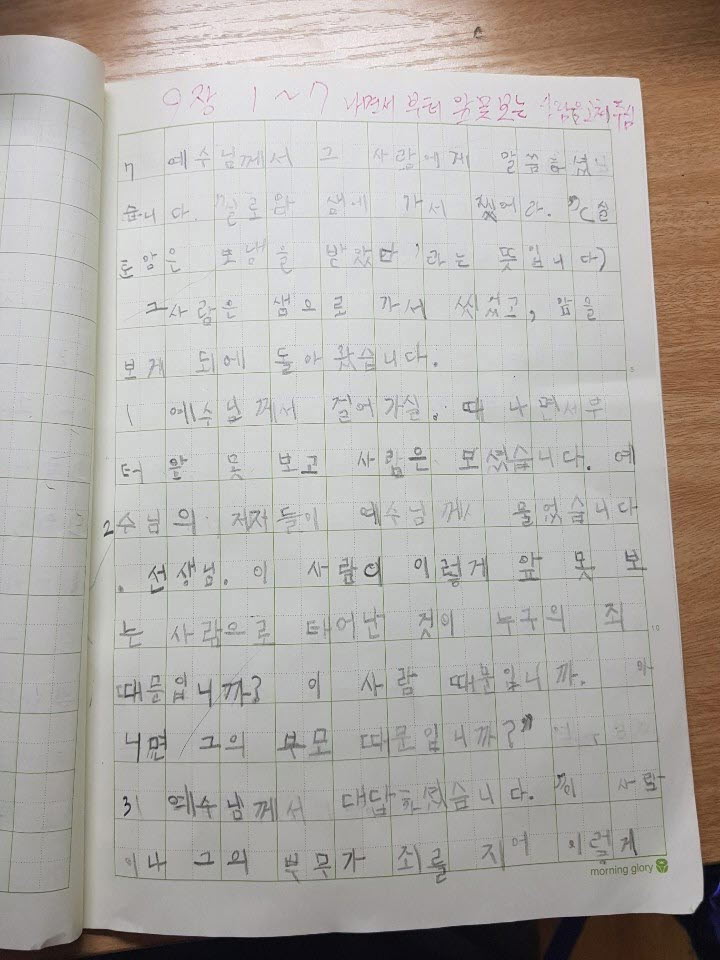 9장 1~7 나면서 부터 앞 못 보는
7 예수님께서 그 사람에게 말씀하셨
습니다. "실로암 샘에 가서 씻어라." (실
로암은 '보냄을 받았다'라는 뜻입니다)
그사람은 샘으로 가서 씻었고, 앞을
보게 되에 돌아 왔습니다.
1 예수님께서 걸어가실. 때 나면서부
터 앞 못 보고 사람은 모셨습니다. 예
2 수님의 저자들이 예수님께 물었습니다
. 선생님. 이 사람이 이렇게 앞 못 보
는 사람으로 태어난 것이 누구의 죄
때문입니까? 이 사람 때문입니까. 아
니면 그의 부모 때문입니까?"
3 예수님께서 대답하셨습니다. "이 사람
이나 그의 부무가 죄를 지어 이렇게
morning glory